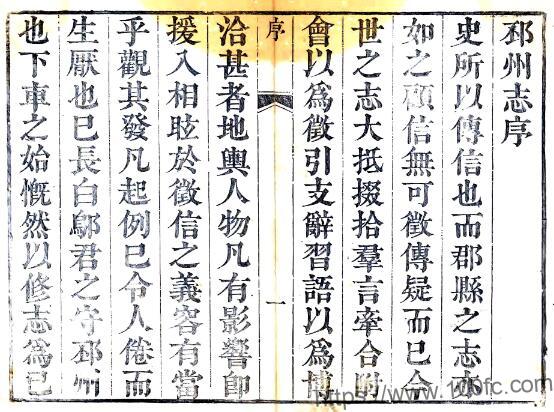 邳州志序
史所以傳信也而郡縣之志亦
如之顧信無可徵傳疑而已今
世之志大抵掇拾羣言牽合附
會以爲徵引支辭習語以爲博
序
一
洽甚者地輿人物凡有影響即
援入相眩於徵信之義容有當
乎觀其發凡起例已令人倦而
生厭也已長白鄔君之守邳州
也下車之始慨然以修志爲己
https://www.1000fc.com